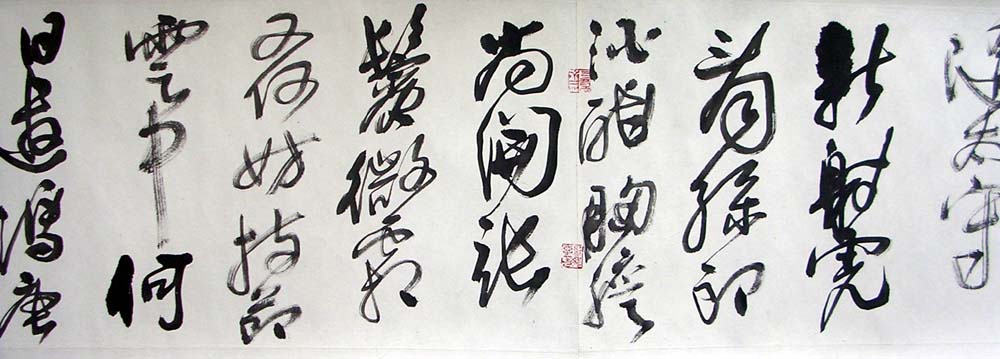 隨太守
親射虎
看孫郎
酒酣胸膽
尚開張
鬢微霜
又何妨持節
雲中何
日遣馮唐